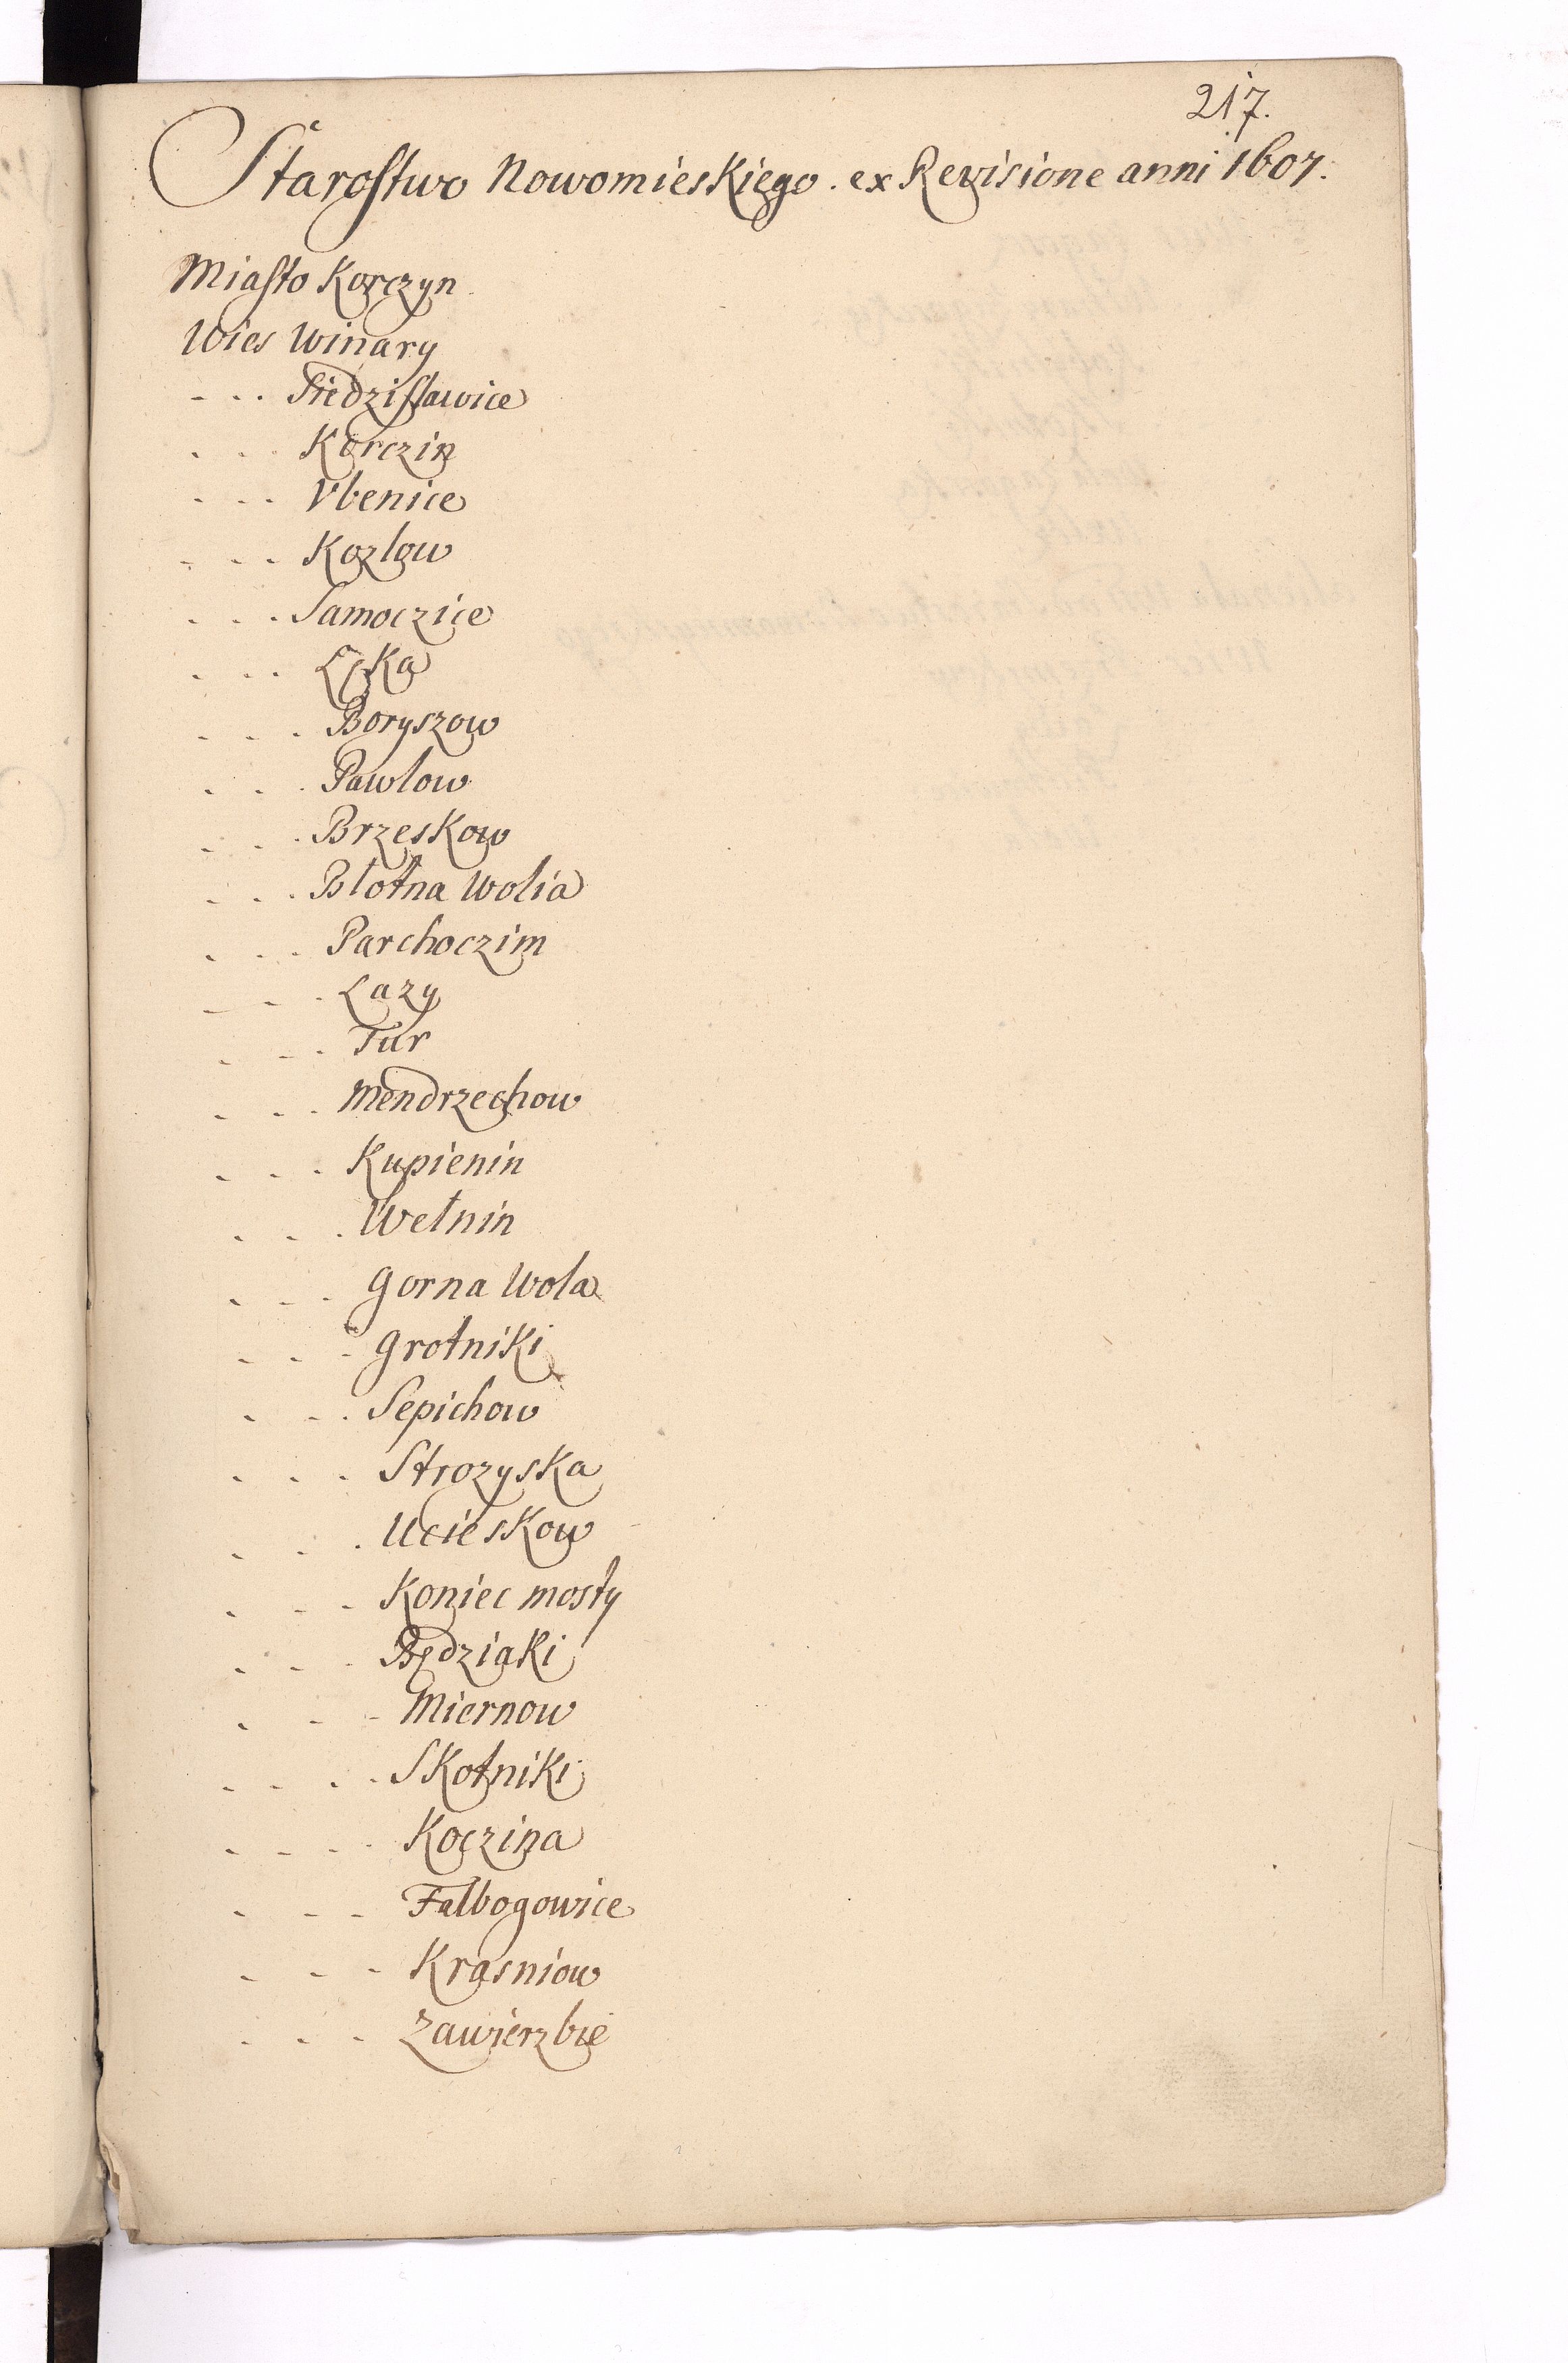 217.
Starostwo Nowomieskiego. ex Revisione anni 1607.
Miasto Korczyn
Wies Winary
- - . Siedzislawice
. . . Korczin
. - . Vbenice
. . . Kozlow
. . . Samoczice
. . . Lęka
. . . Boryszow
. . . Pawlow
. . . Brzeskow
. . . Blotna Wolia
. . . Parchoczim
. . . Lazy
. . . Tur
. . . Mendrzechow
. . . Kupienin
. . . Wełnin
. . . Gorna Wola
. . . Grotniki
. . . Sepichow
. . . Strozyska
. . . Ucieskow
. . . Koniec mosty
. . . Będziaki
. . . Miernow
. . . . Skotniki
. . . . Koczina
. . . Falbogowice
. . . Krasniow
. . . Zawierzbie